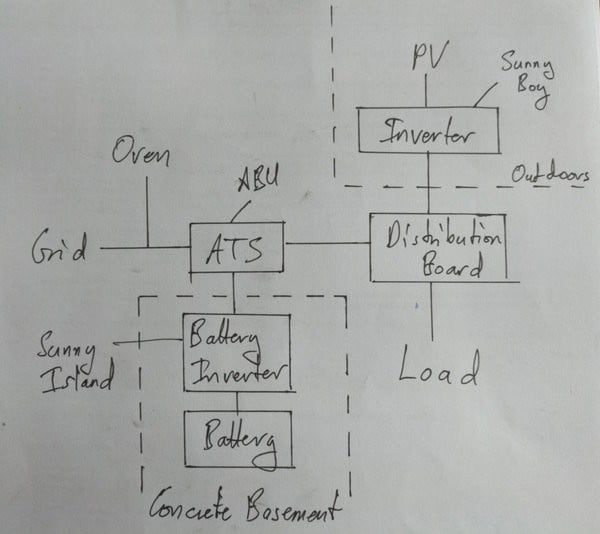 PV
Sunny
Boy
Inverter
Outdoors
Oven
ABU
Grid
ATS
Distribution
Board
Sunny
Island
Battery
Inverter
Load
Battery
Concrete Basement